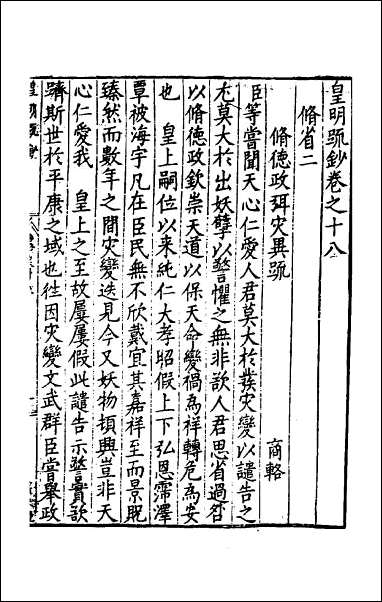 皇明疏鈔卷之十八
脩省二
脩德政弭災異疏
商輅
臣等嘗聞天心仁愛人君莫大於裁災變以譴告之
尤莫大於出妖孽以警懼之無非欲人君思省過咎
以脩德政欽崇天道以保天命變禍為祥轉危為安
也　皇上嗣位以來純仁大孝昭假上下弘恩霈澤
覃被海宇凡在臣民無不欣戴宜其嘉祥至而景貺
臻然而數年之間災變迭見今又妖物頓興豈非天
心仁愛我　皇上之至故屢屢假此譴告示警實欲
躋斯世於平康之域也徃因災變文武群臣嘗舉政